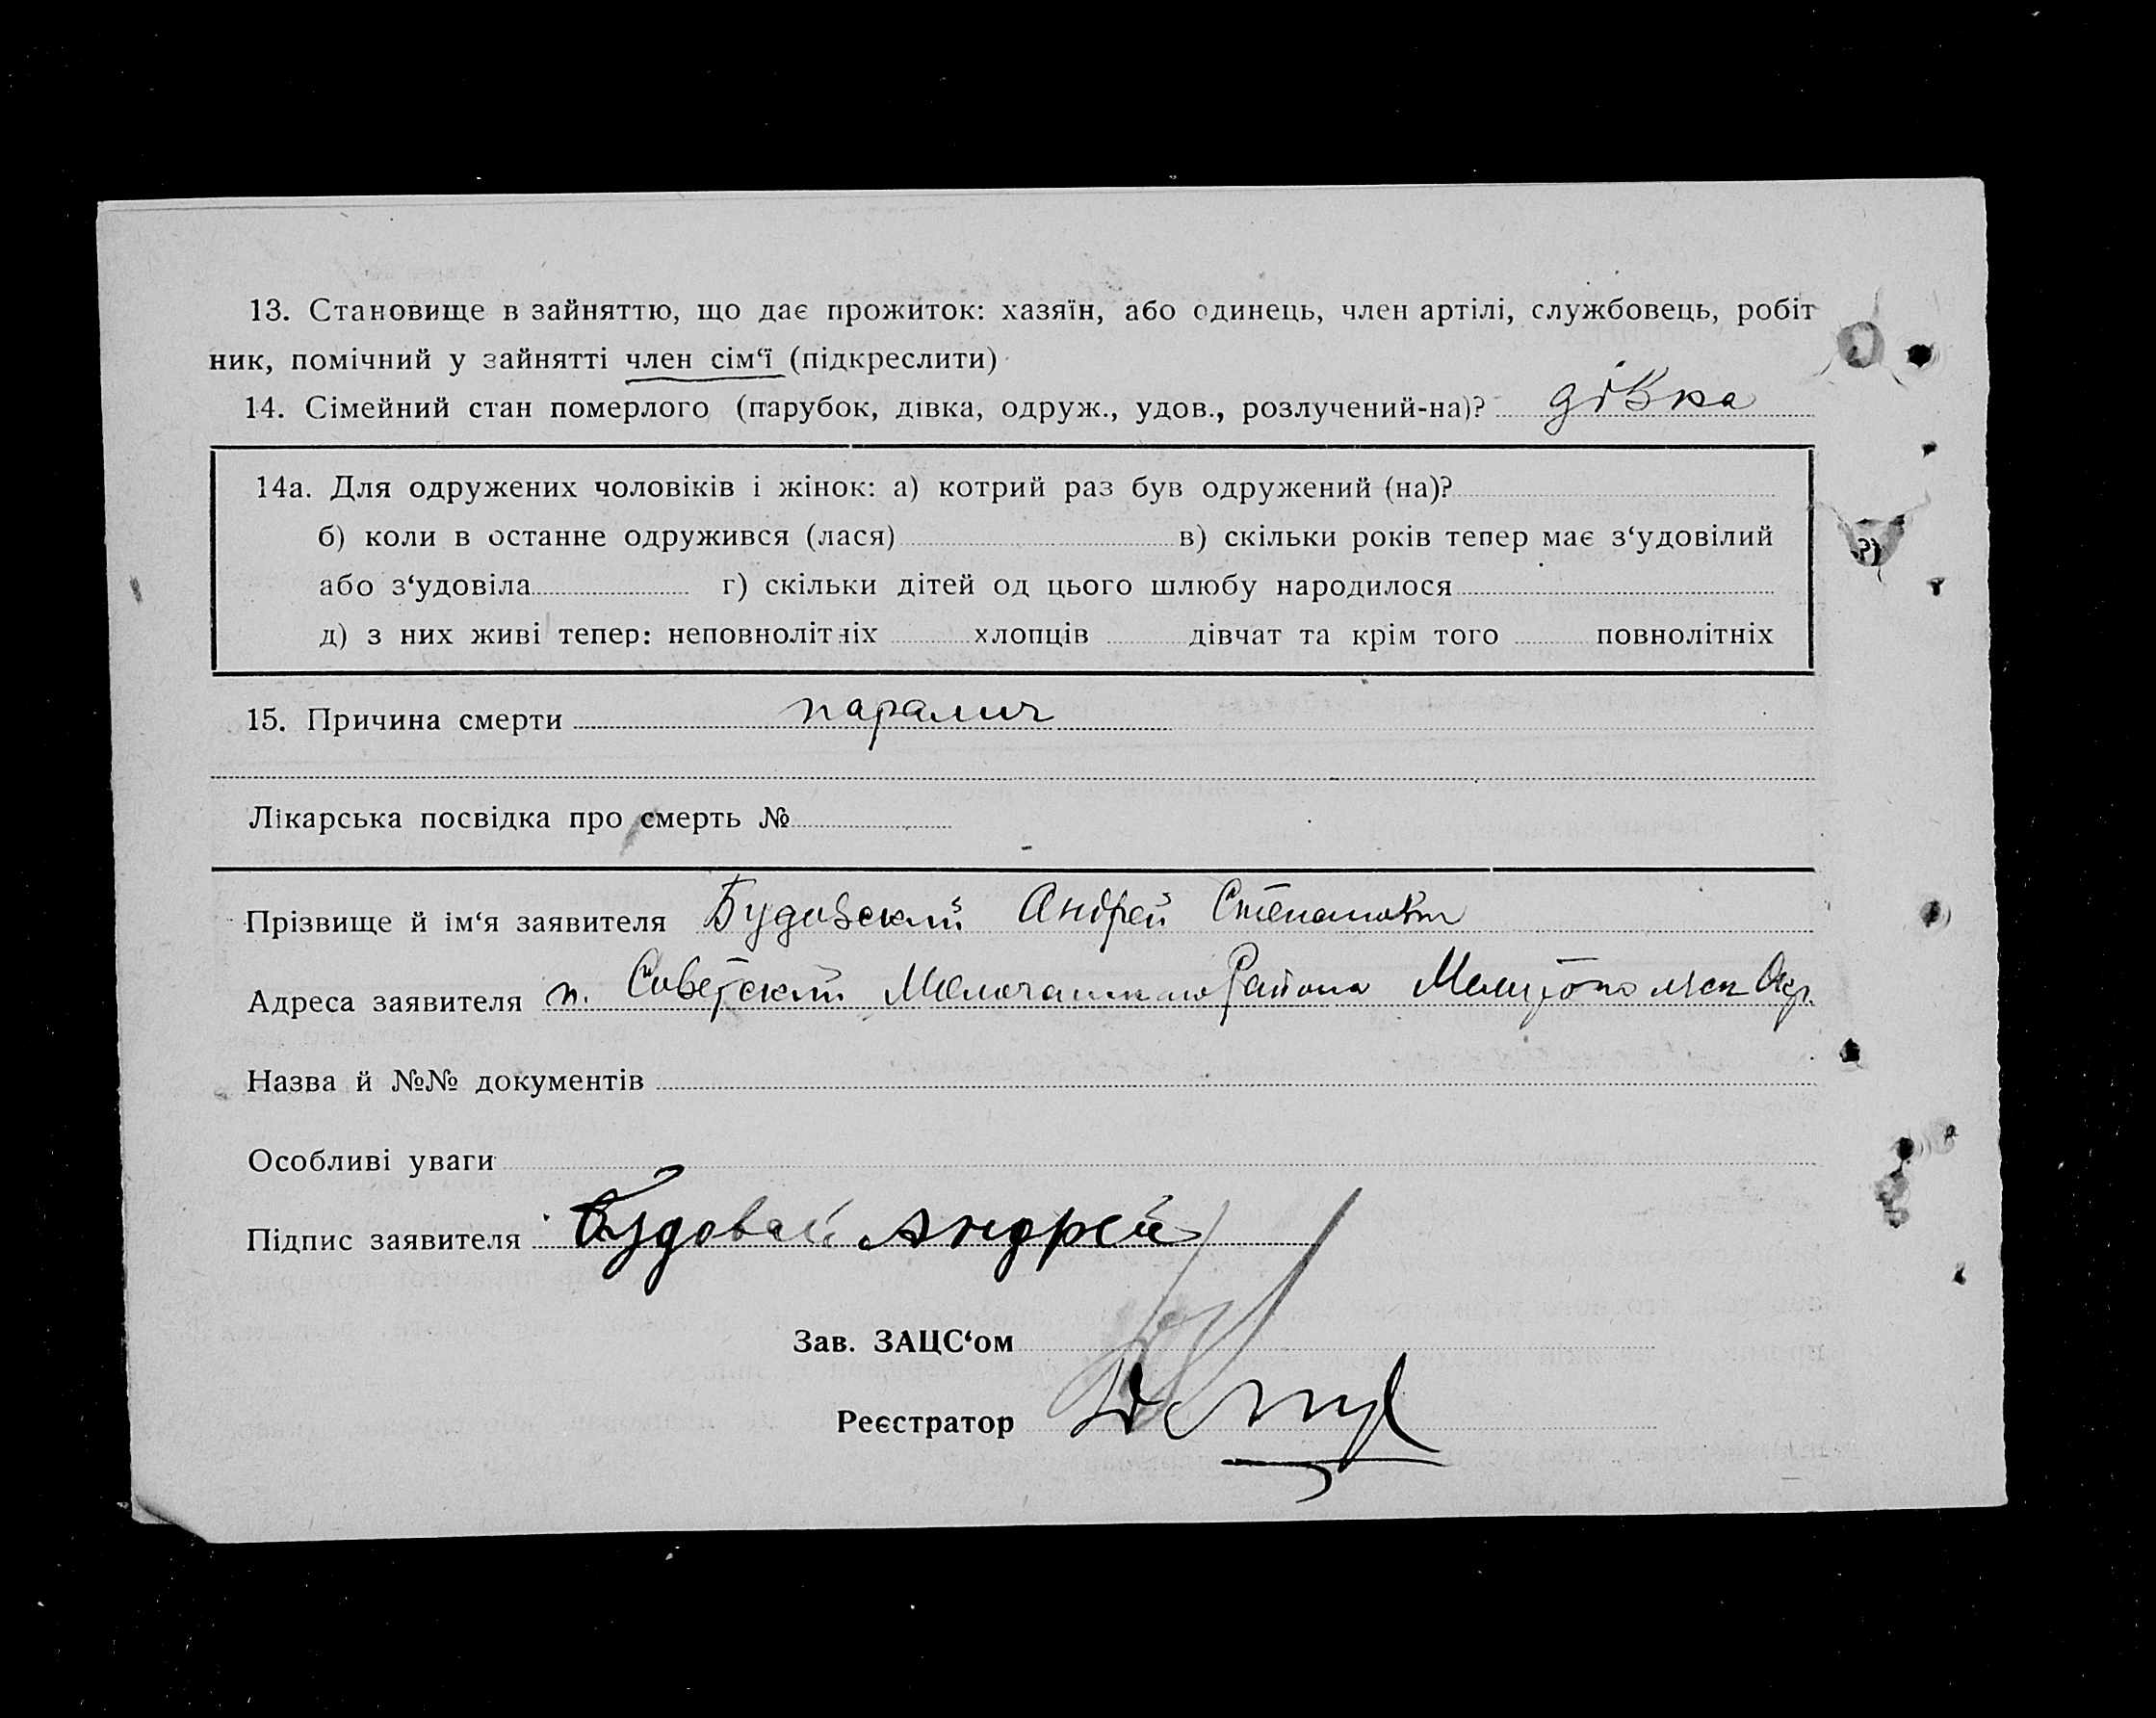 13. Становище в зайняттю, що дає прожиток: хазяїн, або одинець, член артілі, службовець, робіт
ник, помічний у зайнятті член сім‘ї (підкреслити)
14. Сімейний стан померлого (парубок, дівка, одруж., удов., розлучений-на)? дівка
14а. Для одружених чоловіків і жінок: а) котрий раз був одружений (на)?
б) коли в останне одружився (лася) в) скільки років тепер має з‘удовілий
або з‘удовіла г) скільки дітей од цього шлюбу народилося
д) з них живі тепер: неповнолітніх хлопців дівчат та крім того повнолітніх
15. Причина смерти паралич
Лікарська посвідка про смерть №
Прізвище й ім‘я заявителя Будовский Андрей Степанович
Адреса заявителя п. Советский Молочанского Района Мелитопольск Окр.
Назва й №№ документів
Особливі уваги
Підпис заявителя Андрей
Зав. ЗАЦС‘ом
Реєстратор